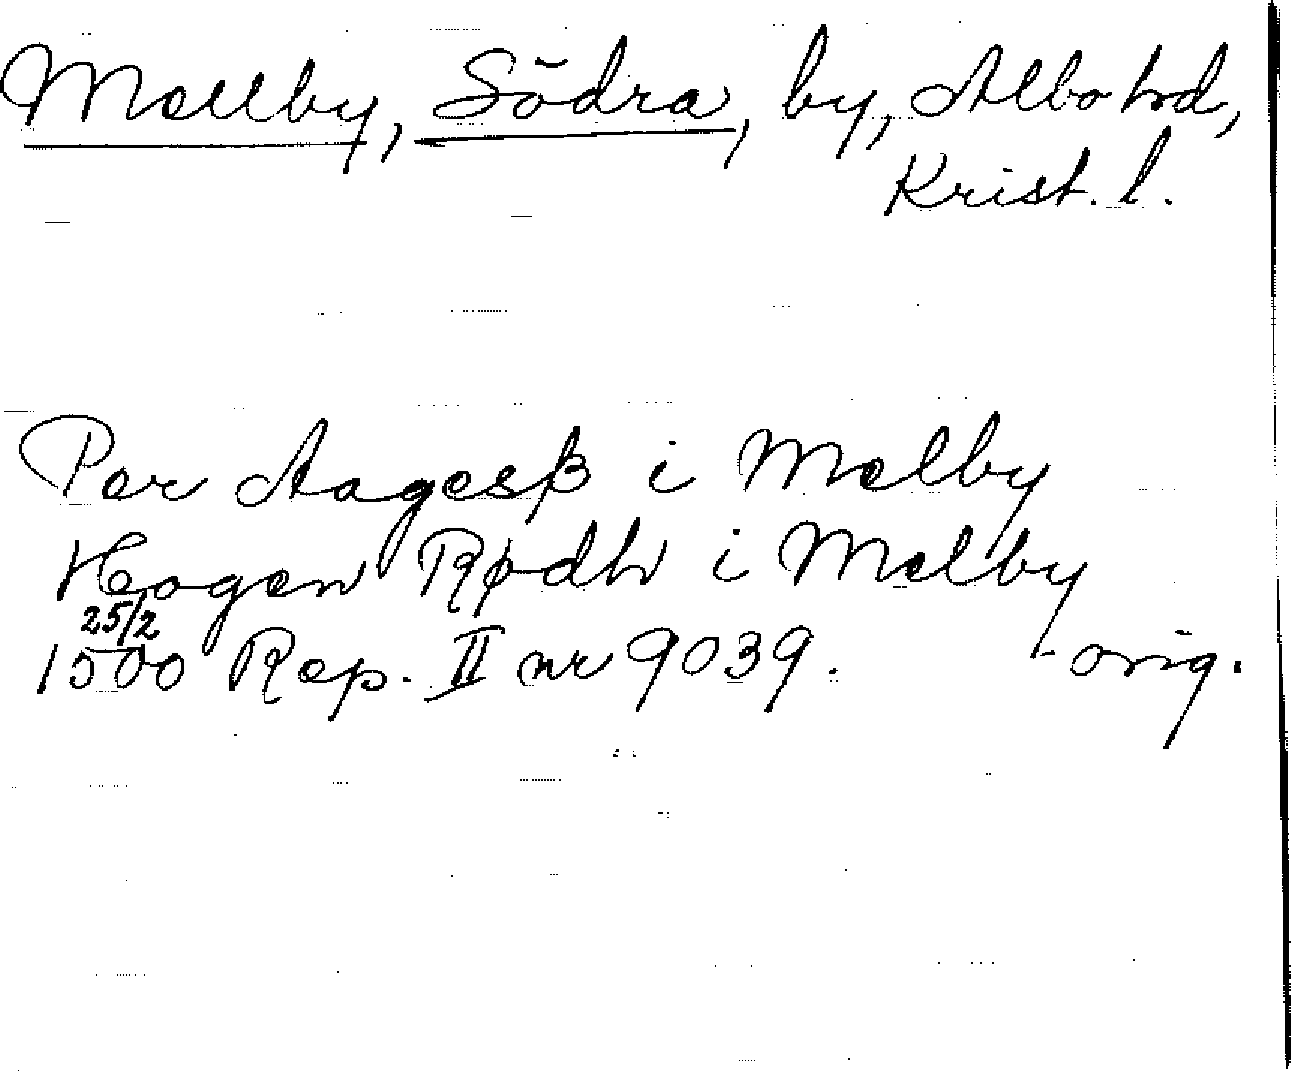 Mellby, Södra, by, Albo hd,
Krist. l.
Per Aagesβ i Melby
Hogen Rødh i Melby
25/2
1500 Rep. II nr 9039. - orig.